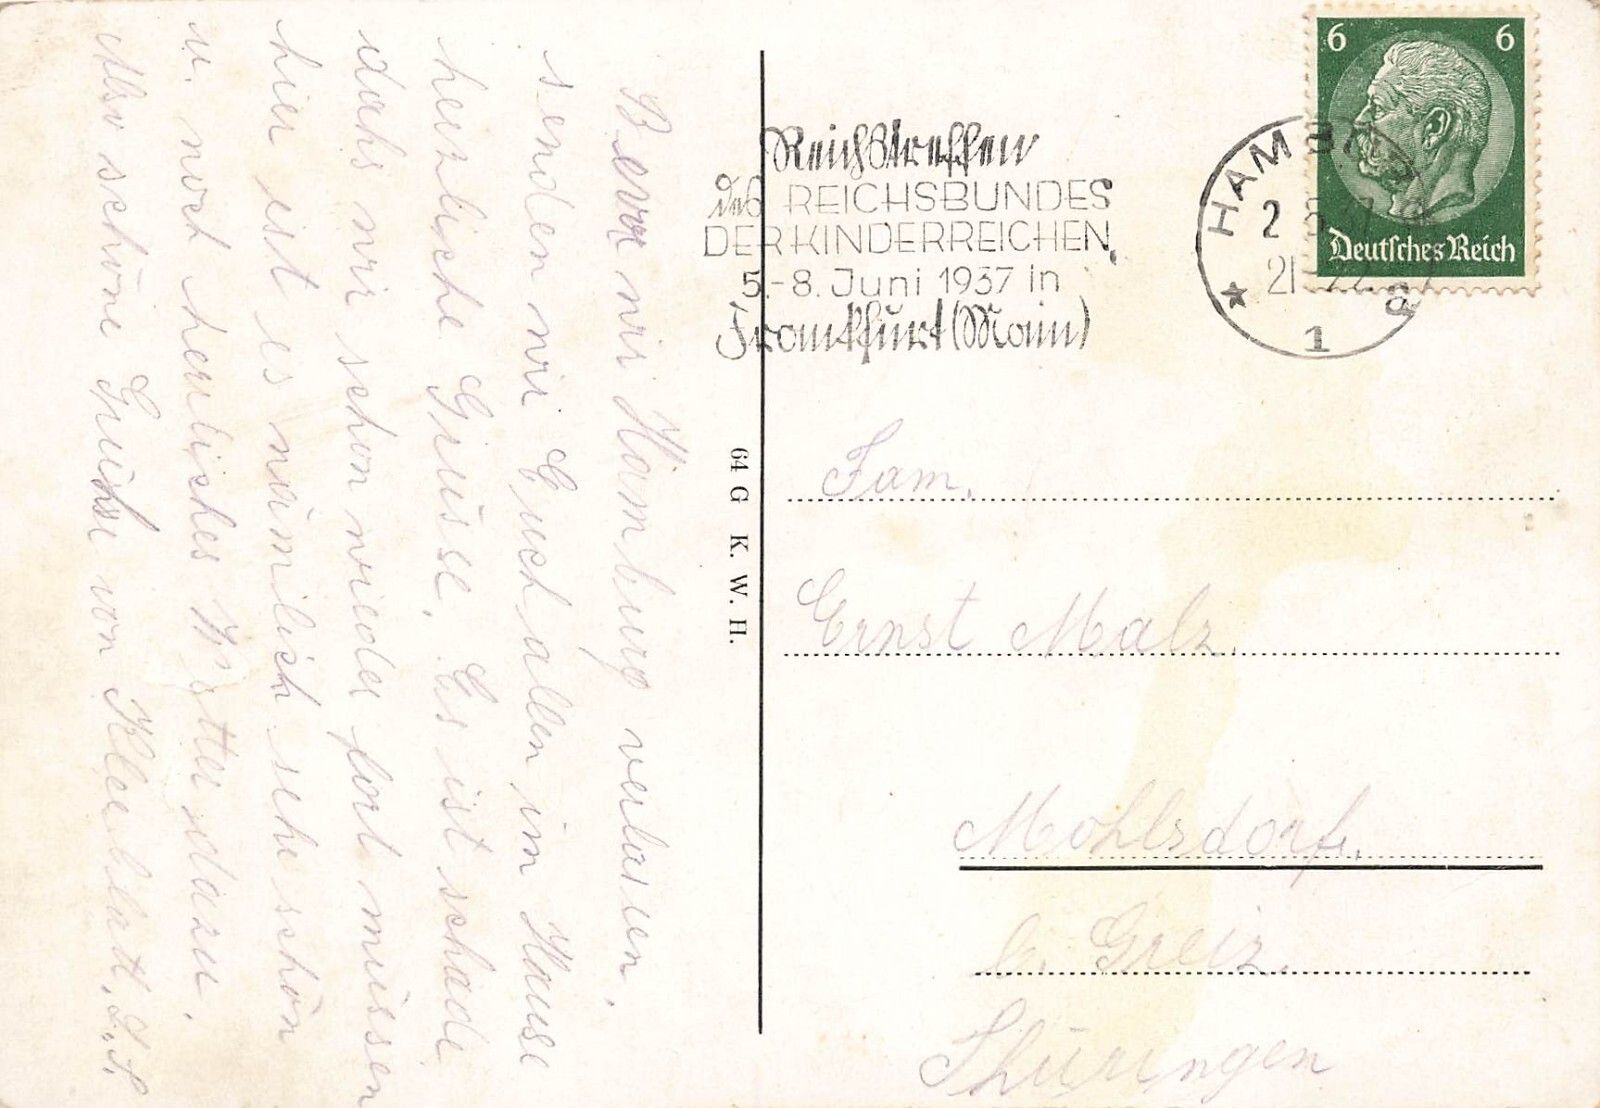 Bevor wir Hamburg verlassen,
senden wir Euch allen im Hause
herzliche Grüsse. Es ist schade
dahs wir schon wieder fort müssen
hier ist es nämlich sehr schön
u. noch herrliches Wetter dazu.
Also schöne Grühse von Kleeblatt.
Reichstreffen
des REICHSBUNDES
DER KINDERREICHEN
5.-8. Juni 1937 in
Frankfurt (Main)
HAMBURG
21-22
1
6 6
Deutsches Reich
64 G K. W. H.
Fam.
Ernst Malz.
Mohlsdorf.
b. Greiz.
Thüringen